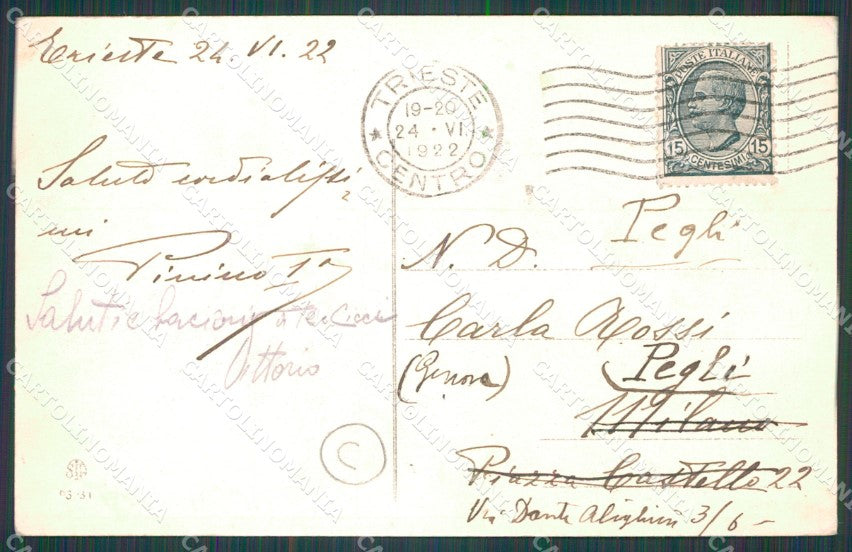 Trieste 24 VI. 22
Saluti cordialissi
mi
Pinino
Saluti e bacioni a te e Cicci
Vittorio
TRIESTE
19-20
24 · VI
1922
CENTRO
POSTE ITALIANE
15 15
CENTESIMI
Pegli
N. D.
Carla Rossi
(Genova)
Pegli
Milano
Piazza Castello 22
Via Dante Alighieri 3/6 -
C
CARTOLINOMANIA